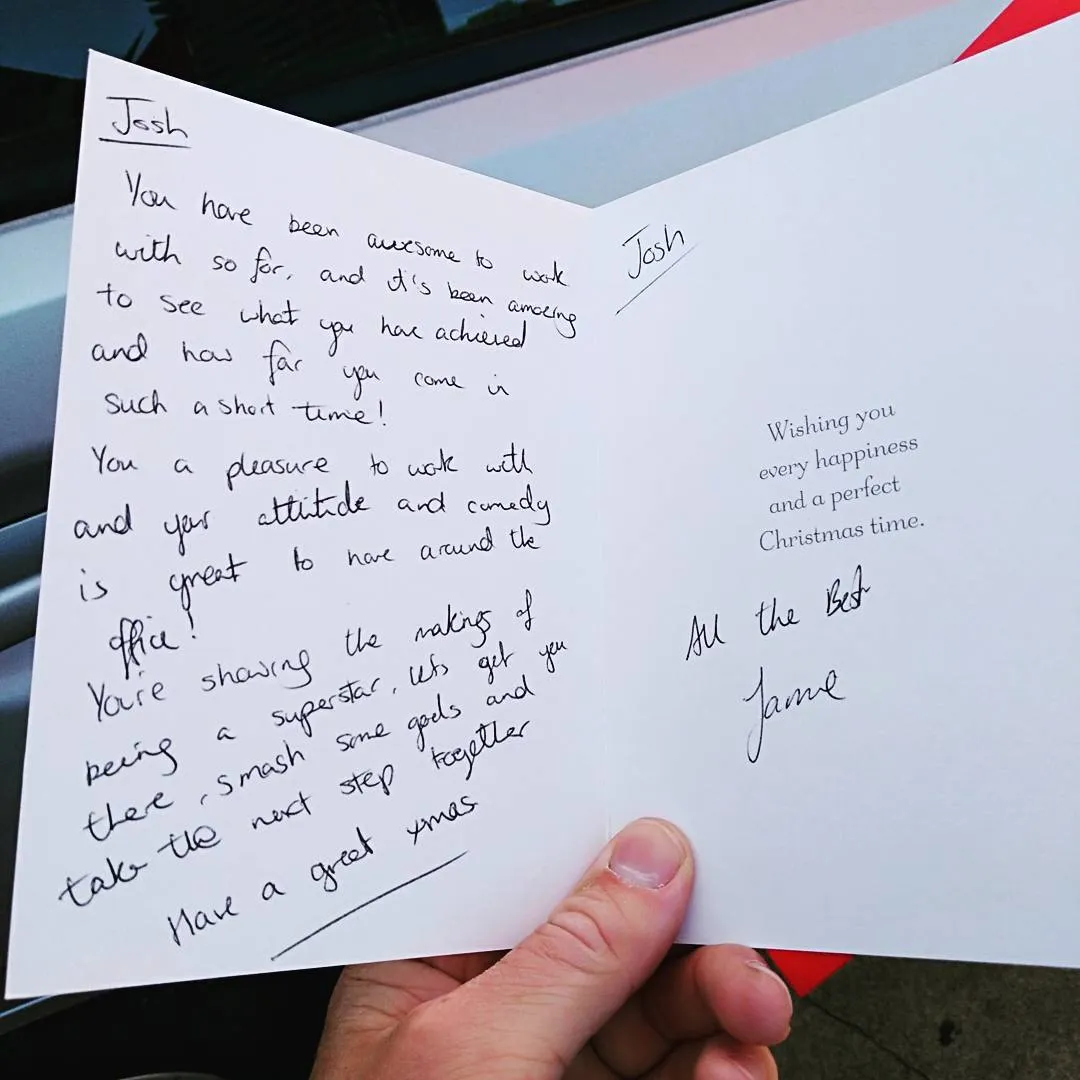 Josh
You have been awesome to work
with so far, and it's been amazing
to see what you have achieved
and how far you come in
such a short time!
You a pleasure to work with
and your attitude and comedy
is great to have around the
office!
You're showing the makings of
being a superstar, lets get you
there, smash some goals and
take the next step together
Have a great xmas
Josh
Wishing you
every happiness
and a perfect
Christmas time.
All the Best
Jamie